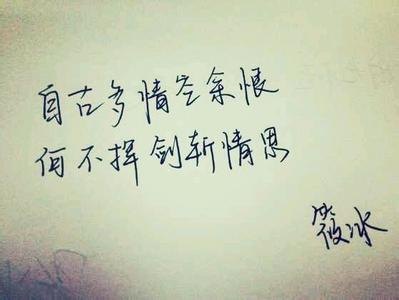 自古多情空余恨
何不挥剑斩情思
筱冰